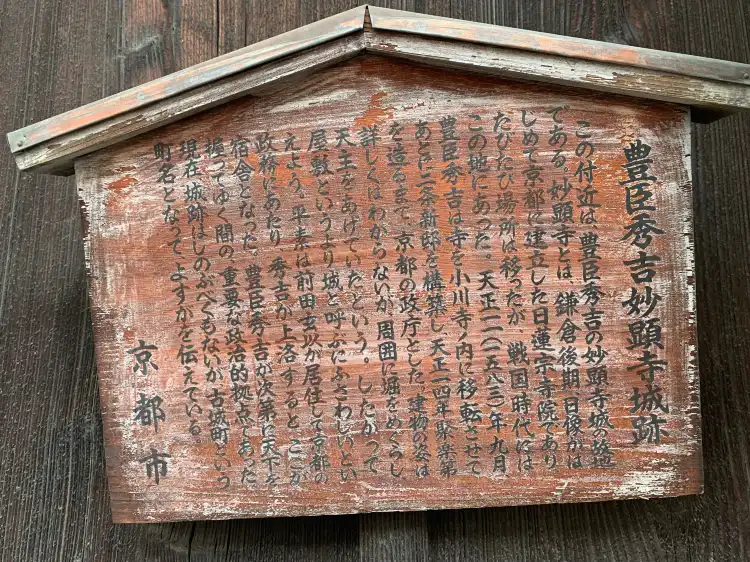 豊臣秀吉妙顕寺城跡
この付近は、豊臣秀吉の妙顕寺城の跡
である。妙顕寺とは、鎌倉後期、日像がは
じめて京都に建立した日蓮宗寺院であり
たびたび場所は移ったが、戦国時代には
この地にあった。天正一一(一五八三)年九月
豊臣秀吉は寺を小川寺ノ内に移転させて
あとに二条新邸を構築し、天正一四年聚楽第
を造るまで、京都の政庁とした。建物の姿は
詳しくはわからないが、周囲に堀をめぐらし
天主をあげていたという。したがって、
屋敷というより城と呼ぶにふさわしいとい
えよう。平素は前田玄以が居住して京都の
政務にあたり、秀吉が上洛すると、ここが
宿舎となった。豊臣秀吉が次第に天下を
握ってゆく間の、重要な政治的拠点であった。
現在城跡はしのぶべくもないが、古城町という
町名となって、よすがを伝えている。
京都市